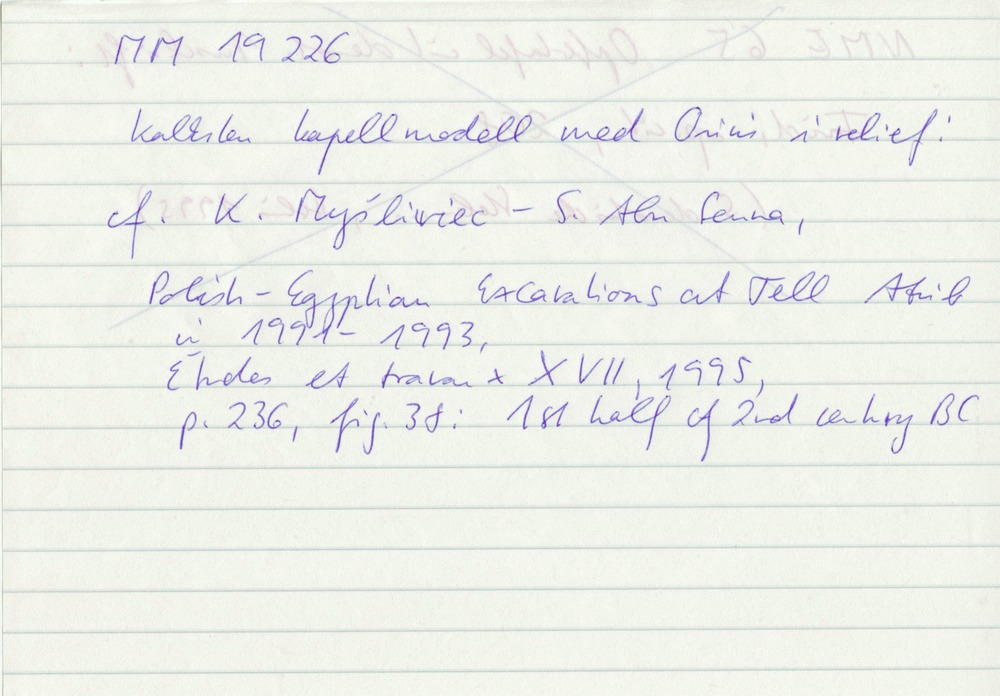 MM 19226
Kalksten kapellmodell med Osiris i relief:
cf. K. Myśliwiec – S. Abu Senna,
Polish-Egyptian Excavations at Tell Atrib
in 1991-1993,
Etudes et travaux XVII, 1995,
p. 236, fig. 38: 1st half of 2nd century BC